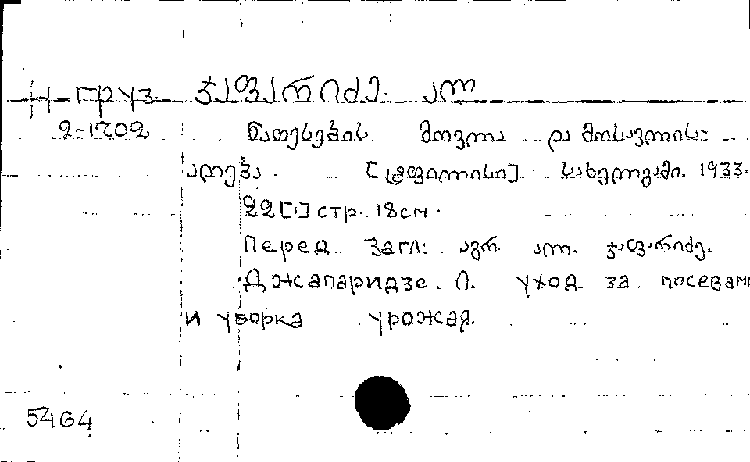 Н-груз ჯაფარიძე. ალ
2-1202 ნათესების მოვლა და მოსავლის
აღება. [ტფილისი] სახელგამი. 1933.
22[1] стр. 18см.
Перед загл: აგრ. ალ. ჯაფარიძე.
Джапаридзе. Л. уход за посевами
и уборка урожая.
5464